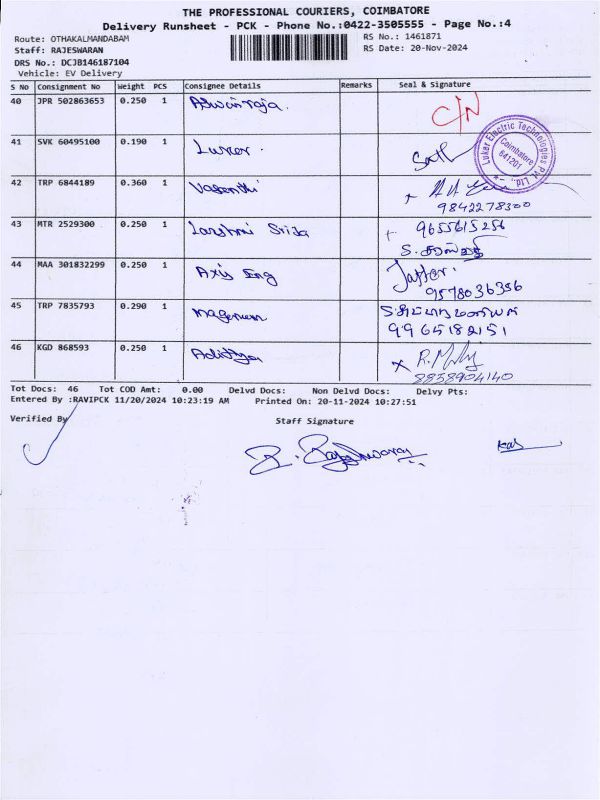 THE PROFESSIONAL COURIERS, COIMBATORE
Delivery Runsheet - PCK - Phone No.:0422-3505555 - Page No.:4
Route: OTHAKALMANDABAM
RS No.: 1461871
Staff: RAJESWARAN
RS Date: 20-Nov-2024
DRS No.: DCJB146187104
Vehicle: EV Delivery
S No Consignment No Weight PCS Consignee Details Remarks Seal & Signature
40 JPR 502863653 0.250 1 Aswin raja. C/N
41 SVK 60495100 0.190 1
Luker Electric Technologies Pvt. Ltd.
Coimbatore
641201
42 TRP 6844189 0.360 1 Vasanthi
9842278300
43 MTR 2529300 0.250 1 Lakshmi Srija 9655615256
44 MAA 301832299 0.250 1 Axis Eng
9578036356
45 TRP 7835793 0.290 1
9965182151
46 KGD 868593 0.250 1 Adithya
8838904140
Tot Docs: 46 Tot COD Amt: 0.00 Delvd Docs: Non Delvd Docs: Delvy Pts:
Entered By :RAVIPCK 11/20/2024 10:23:19 AM Printed On: 20-11-2024 10:27:51
Verified By
Staff Signature
R. Rajeshwaran